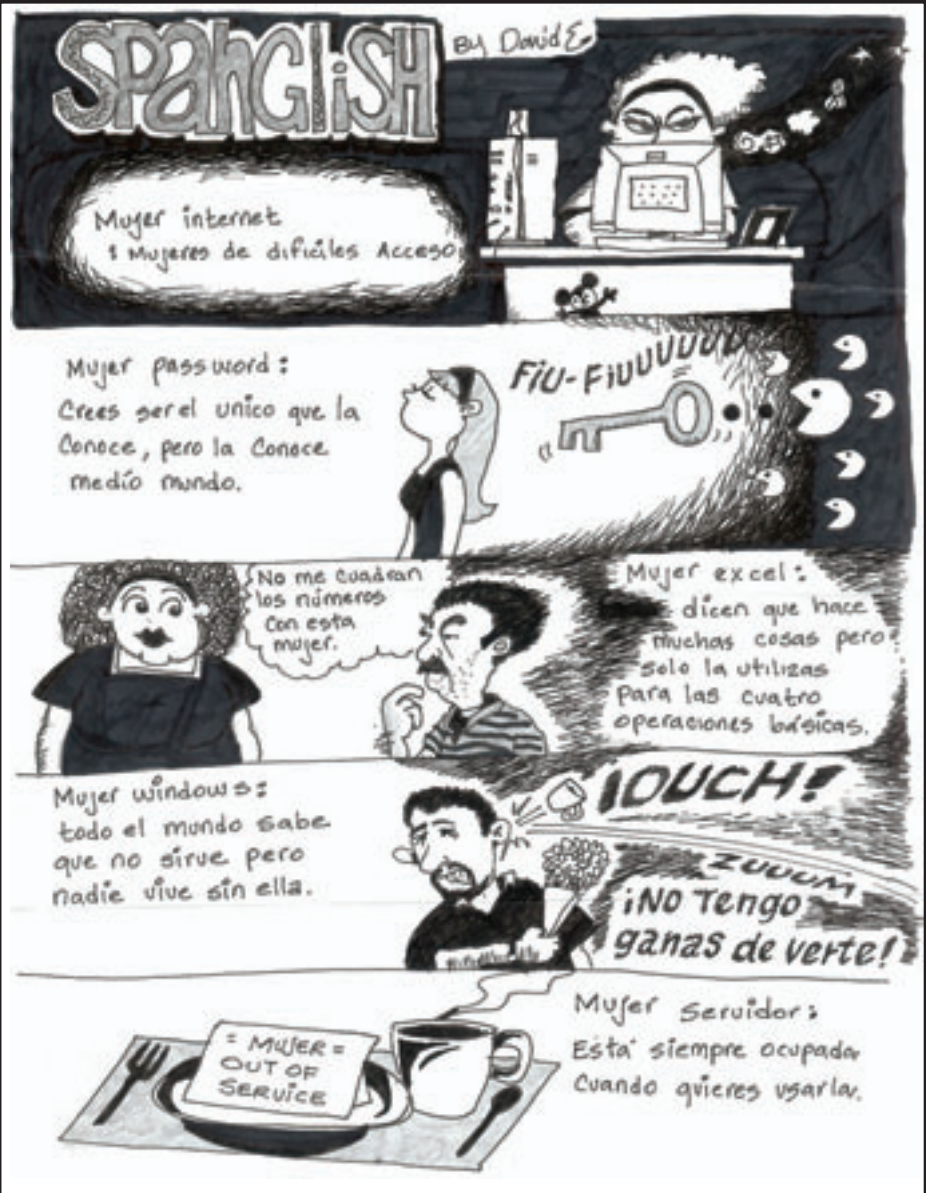 SPANGLISH
By David E.
Mujer internet
: Mujeres de dificiles Acceso
Mujer password:
Crees ser el unico que la
Conoce, pero la Conoce
medio mundo.
FIU-FIUUUUUUU
No me cuadran
los números
con esta
mujer.
Mujer excel:
dicen que hace
muchas cosas pero
solo la utilizas
para las cuatro
operaciones básicas.
Mujer windows:
todo el mundo sabe
que no sirve pero
nadie vive sin ella.
¡OUCH!
ZUUUM
¡NO Tengo
ganas de verte!
= MUJER =
OUT OF
SERVICE
Mujer servidor:
Está siempre ocupada
Cuando quieres usarla.